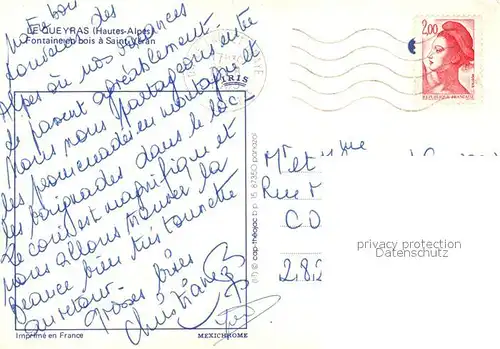 Notre bon
souvenir des
LE QUEYRAS (Hautes-Alpes)
Fontaine en bois à Saint-Véran
Alpes où nos vacances
se passent agréablement.
Nous nous partageons entre
les promenades en montagne et
les baignades dans le lac.
Le coin est magnifique et
nous allons trouver la
france bien tristounette
au retour.
Grosses bises
Christiane
Imprimé en France
MEXICHROME
cap-théojac b.p. 15 87350 panazol
PARIS
2,00
REPUBLIQUE FRANÇAISE
Mr et Mme
Rue
CO
282
privacy protection
Datenschutz